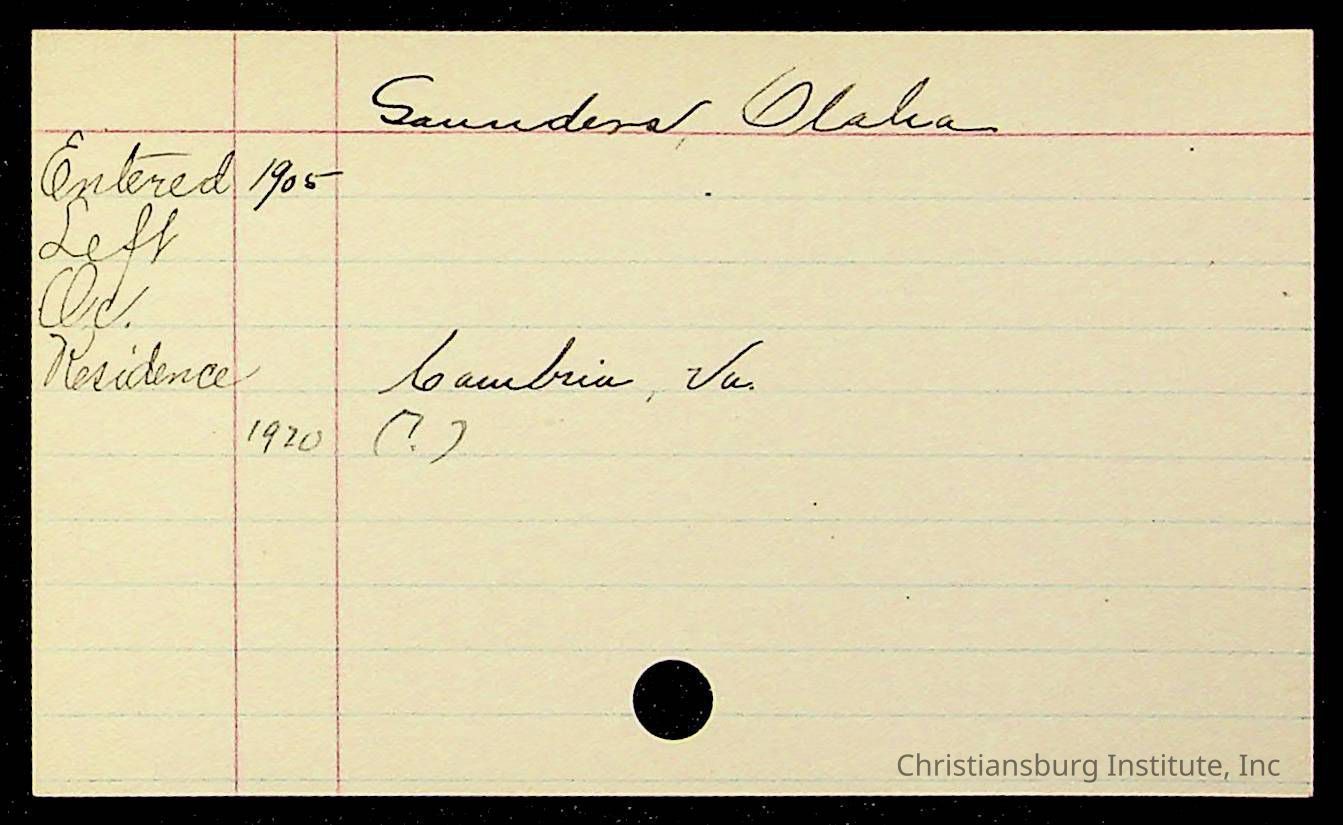 Saunders, Olaha
Entered 1905
Left
Oc.
Residence Cambria, Va.
1920 (?)
Christiansburg Institute, Inc